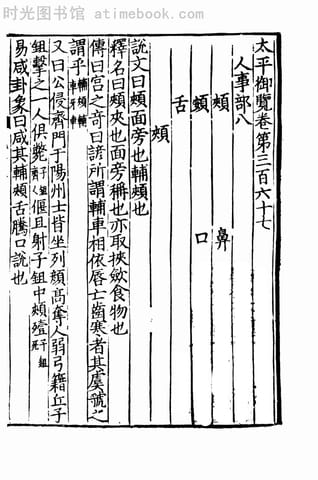 时光图书馆 - atimebook.com
太平御覽卷第三百六十七
人事部八
頰 鼻
頞 口
舌
頰
說文曰頰面旁也輔頰也
釋名曰頰夾也面旁稱也亦取挾斂食物也
傳曰宮之奇曰諺所謂輔車相依唇亡齒寒者其虞虢之
謂乎輔頰輔車牙車
又曰公侵齊門于陽州士皆坐列顏高奪人弱弓籍丘子
鉏擊之一人俱斃子鉏齊人偃且射子鉏中頰殪子鉏死
易咸卦象曰咸其輔頰舌騰口說也